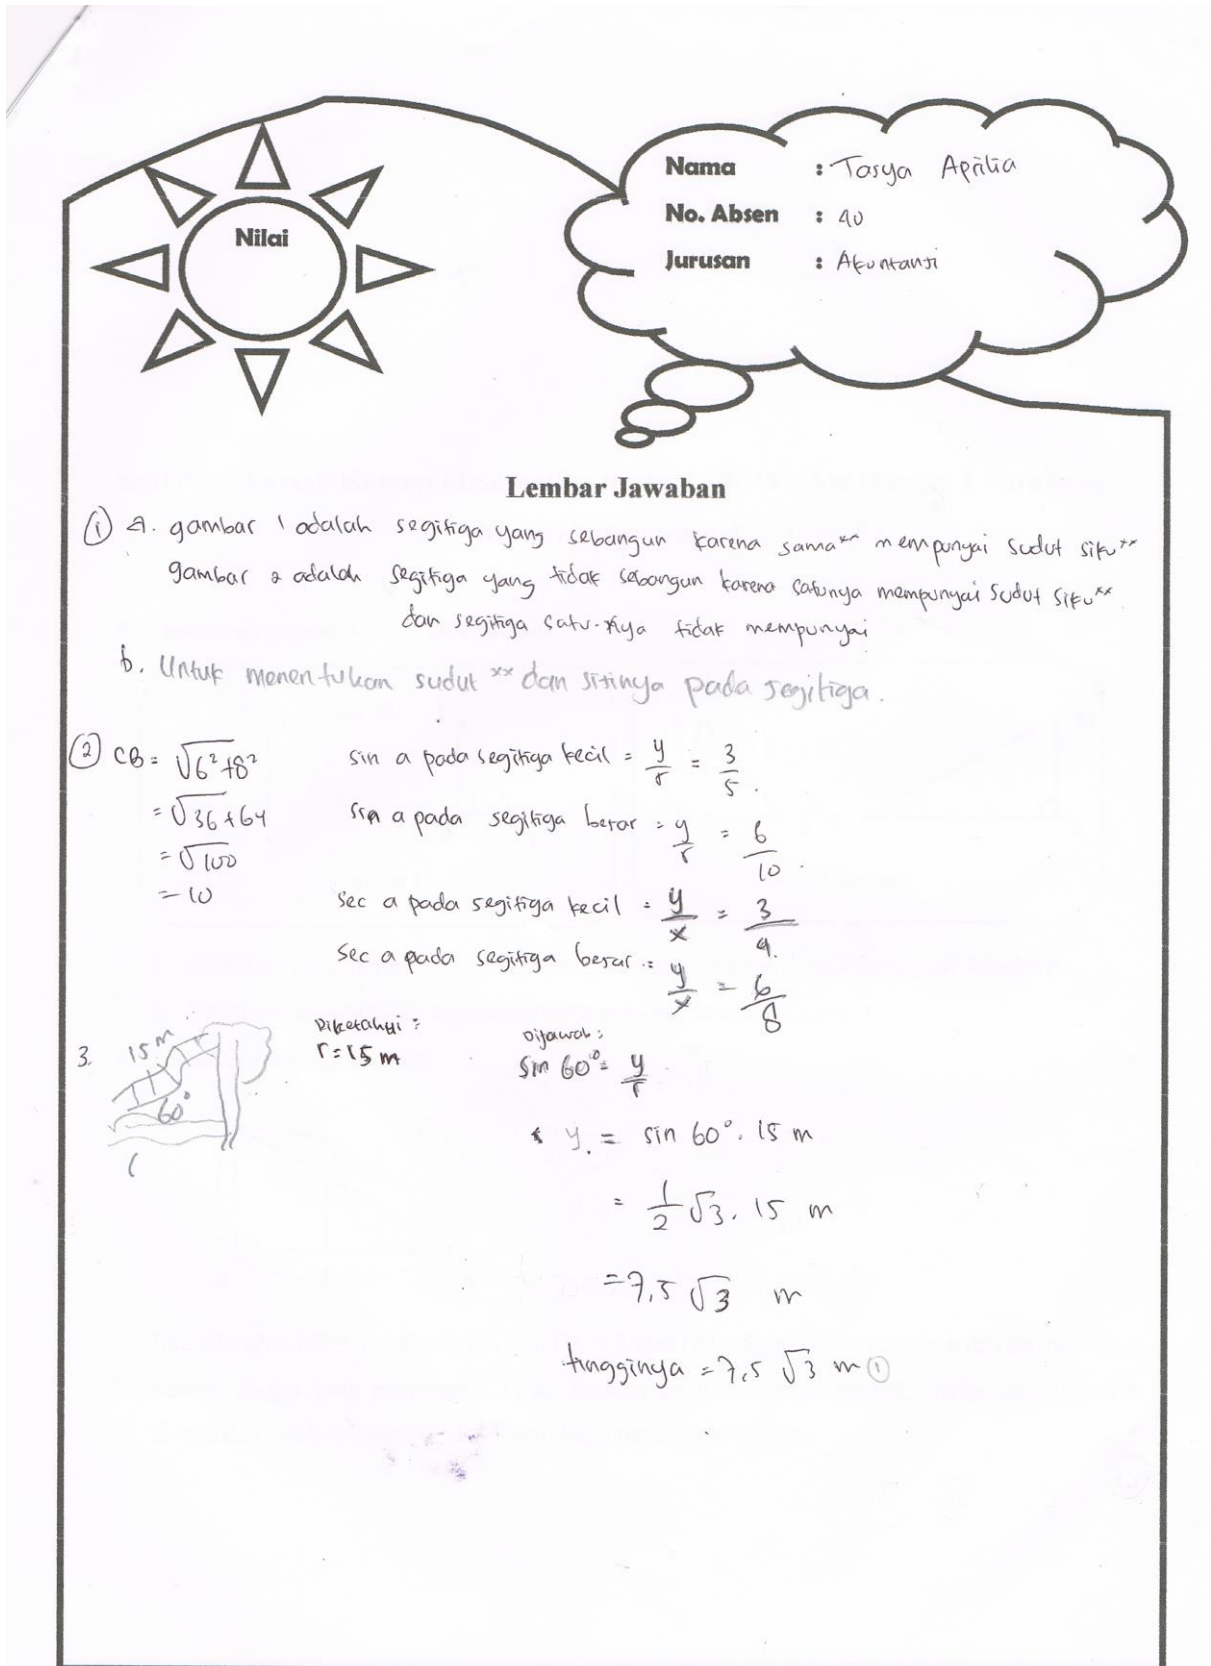 Nama : Tasya Aprilia
No. Absen : 40
Jurusan : Akuntansi
Nilai
Lembar Jawaban
① a. gambar 1 adalah segitiga yang sebangun karena sama" mempunyai sudut siku"
gambar 2 adalah segitiga yang tidak sebangun karena satunya mempunyai sudut siku"
dan segitiga satu-nya tidak mempunyai
b. Untuk menentukan sudut" dan sisinya pada segitiga.
② CB = √6²+8²
= √36+64
= √100
= 10
sin a pada segitiga kecil = y/r = 3/5.
sin a pada segitiga besar = y/r = 6/10.
sec a pada segitiga kecil = y/x = 3/4.
sec a pada segitiga besar = y/x = 6/8
3. 15 m
60°
Diketahui :
r = 15 m
Dijawab :
sin 60° = y/r
y = sin 60° . 15 m
= 1/2 √3 . 15 m
= 7,5 √3 m
tingginya = 7,5 √3 m ①